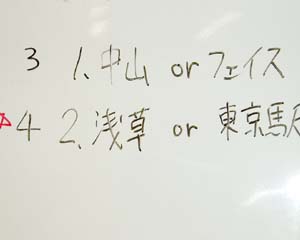 3 1、中山 or フェイス
4 2、浅草 or 東京駅